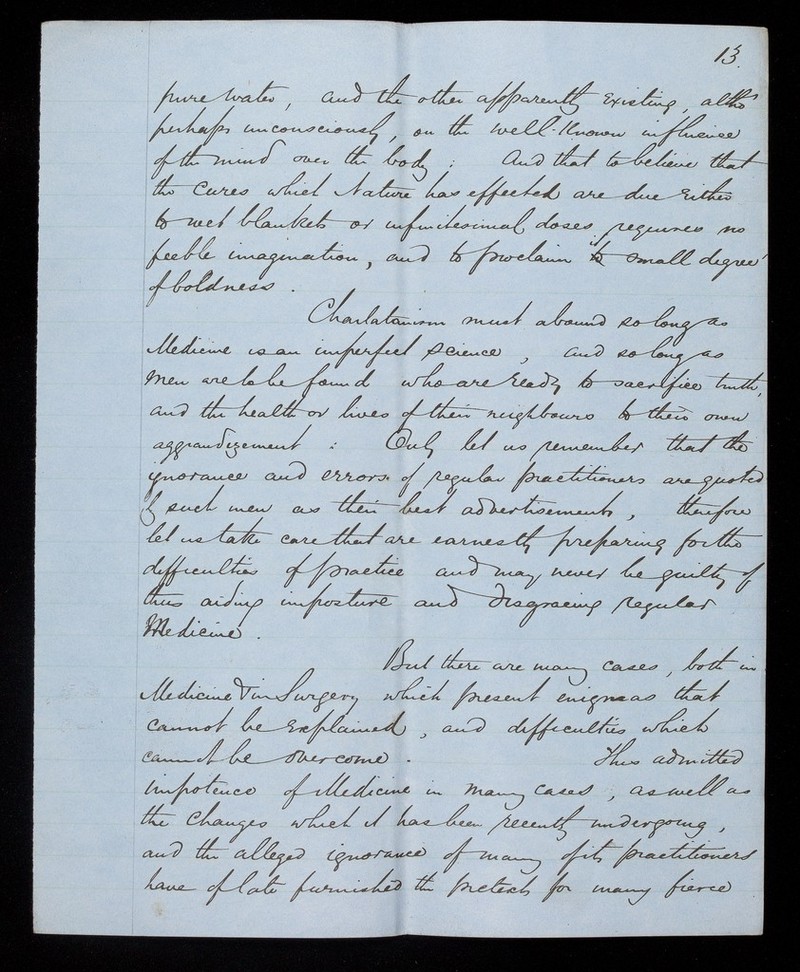 13.
pure water, and the other apparently existing, altho'
perhaps unconsciously, on the well-known influence
of the mind over the body: And that to believe that
the cures which Nature has effected are due either
to wet blankets or infinitesimal doses requires no
feeble imagination, and to proclaim it no small degree
of boldness.
Charlatanism must abound so long as
Medicine is an imperfect science, and so long as
men are to be found who are ready to sacrifice truth,
and the health or lives of their neighbours to their own
aggrandizement: Only let us remember that the
ignorance and errors of regular practitioners are quoted
by such men as their best advertisements, therefore
let us take care that are earnestly preparing for the
difficulties of practice and may never be guilty of
thus aiding imposture and disgracing regular
Medicine.
But there are many cases, both in
Medicine & in Surgery which present enigmas that
cannot be explained, and difficulties which
cannot be overcome. This admitted
impotence of Medicine in many cases, as well as
the changes which it has been recently undergoing,
and the alleged ignorance of many of its practitioners
have of late furnished the pretext for many fierce